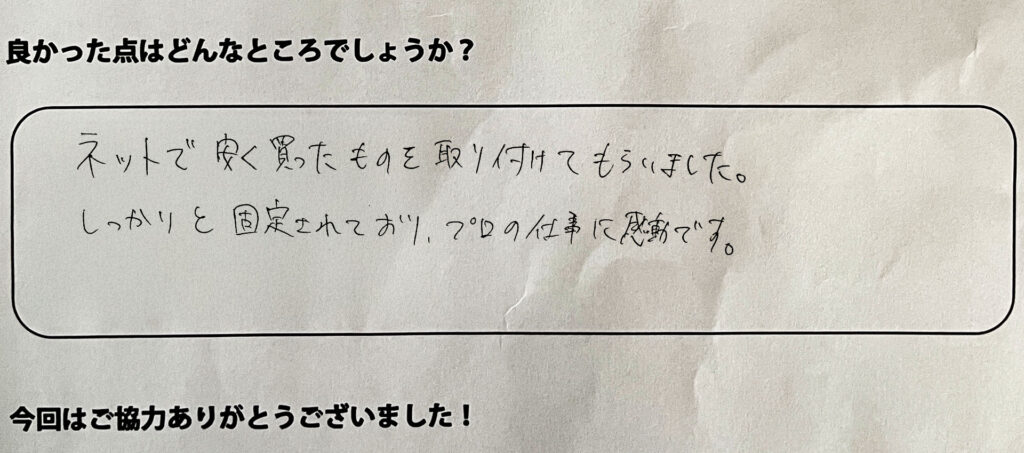 良かった点はどんなところでしょうか？
ネットで安く買ったものを取り付けてもらいました。
しっかりと固定されており、プロの仕事に感動です。
今回はご協力ありがとうございました！